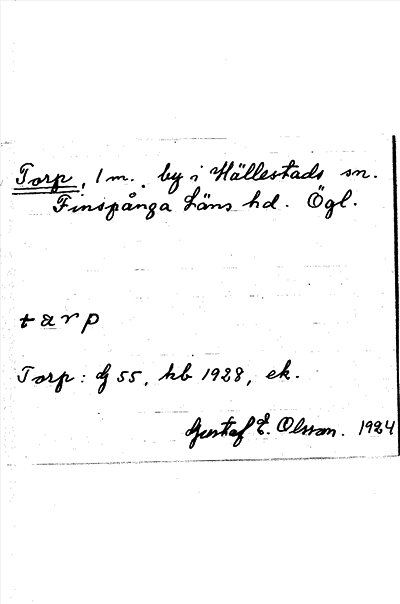 Torp, 1 m. by i Hällestads sn.
Finspånga Läns hd. Ögl.
tarp
Torp: G 55, kb 1928, ek.
Gustaf E. Olsson. 1924